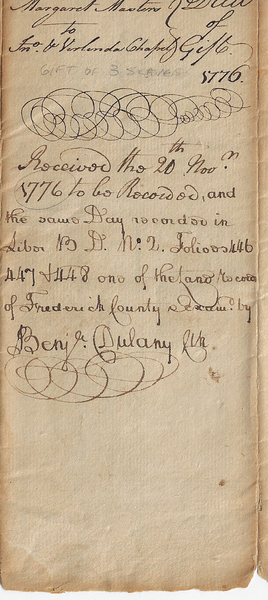 Margaret Masters } Deed
to } of
Jno. & Verlinda Chapel } Gift
GIFT OF 3 SLAVES
1776.
Received the 20th Novr.
1776 to be Recorded, and
the same Day recorded in
Liber B D. No. 2. Folioes 446
447 & 448 one of the Land Records
of Frederick County & Exam.d by
Benj.a Dulany Clk.